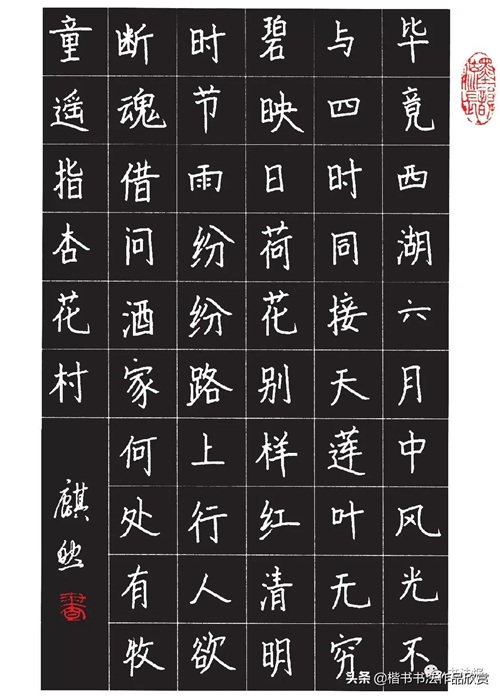 毕竟西湖六月中风光不
与四时同接天莲叶无穷
碧映日荷花别样红清明
时节雨纷纷路上行人欲
断魂借问酒家何处有牧
童遥指杏花村
麒然
書
头条@楷书书法作品欣赏